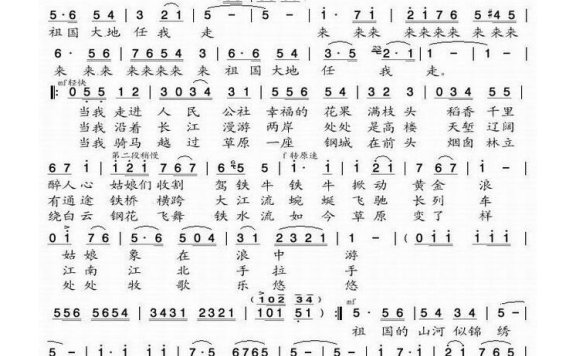 5·6 5 4 | 3 2 1 | 5 - | 5 - | 1· 7 1 | 2 1 7 6 5 #4 5 |
祖国 大地 任我 走 来 来来 来来来来 来来来
6· 5 6 | 7 6 5 4 | 3 1 7 | 6·6 5 4 | 3·5 | 2·1 | 1 - | 1 - |
来 来来 来来来来 来 来 祖国 大地 任 我 走。
mf轻快
0 5 5 | 1 2 | 3 0 3 4 | 3 1 | 5 5 6 | 5 4 | 3 1 | 2 3 4 | 3 2 1 |
当我 走进 人民 公社 幸福的 花果 满枝头 稻香 千里
当我 沿着 长江 漫游 两岸 处处 是高楼 天堑 辽阔
当我 骑马 越过 草原 一座 钢城 在前头 烟囱 林立
第二段稍慢 f转原速
醉人心 姑娘们 收割 驾铁牛 铁牛 掀动 黄金 浪
有通途 铁桥 横跨 大江流 蜿蜒 飞驰 长列 车
绕白云 钢花 飞舞 铁水流 如今 草原 变了 样
0 1 7 6 | 5·6 | 5 0 4 | 3 1 | 2 3 2 1 | 1 - | 1 - | (0 1 1 1 1 1 1 |
姑娘 象在 浪中 游
江南 江北 手拉 手
处处 牧歌 乐悠 悠
(1 0 2 3 4)
mf
5 5 6 5 6 5 4 | 3 4 3 1 2 3 2 1 | 1 0 1 5 1) :| 5· 5 6 | 5 4 |
祖 国的 山河 似锦 绣